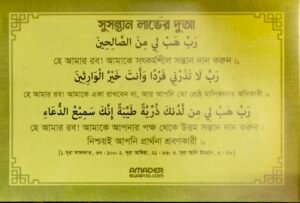 সুসন্তান লাভের দুআ
رَبِّ هَبْ لِي مِنَ الصَّالِحِينَ
হে আমার রব! আমাকে সৎকর্মশীল সন্তান দান করুন।
رَبِّ لَا تَذَرْنِي فَرْدًا وَأَنتَ خَيْرُ الْوَارِثِينَ
হে আমার রব! আমাকে একা রাখবেন না, আর আপনি তো শ্রেষ্ঠ মালিকানার অধিকারী।
رَبِّ هَبْ لِي مِن لَّدُنكَ ذُرِّيَّةً طَيِّبَةً إِنَّكَ سَمِيعُ الدُّعَاءِ
হে আমার রব! আমাকে আপনার পক্ষ থেকে উত্তম সন্তান দান করুন।
নিশ্চয়ই আপনি প্রার্থনা শ্রবণকারী।
[১. সূরা সাফফাত, ৩৭ : ১০০; ২. সূরা আম্বিয়া, ২১ : ৮৯; ৩. সূরা আলি ইমরান, ৩ : ৩৮]
AMADER